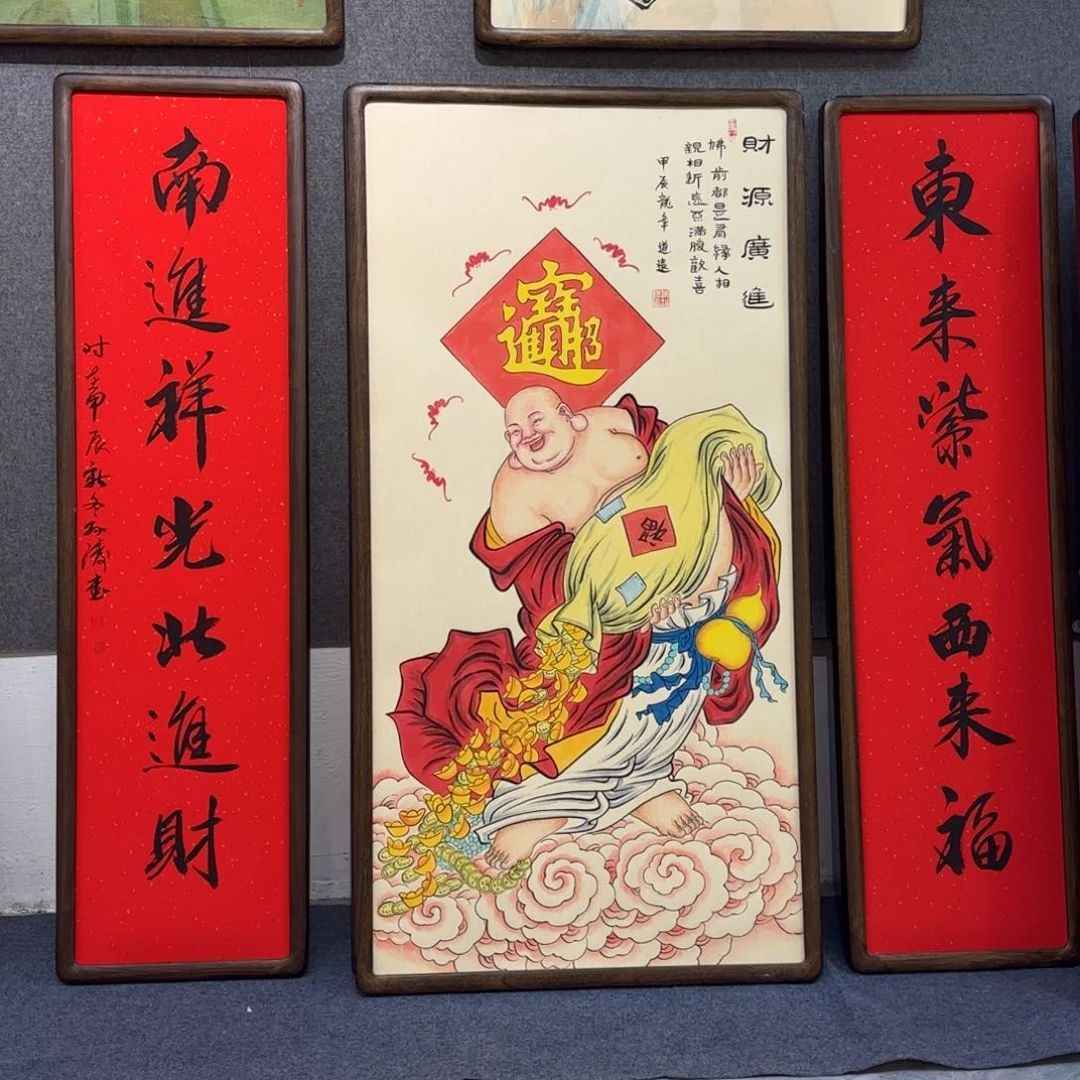 東来紫氣西来福
財源廣進
佛前都是有緣人相
親相近怎不滿腹歡喜
甲辰龍年道遠
招財進寶
福
南進祥光北進財
时在甲辰